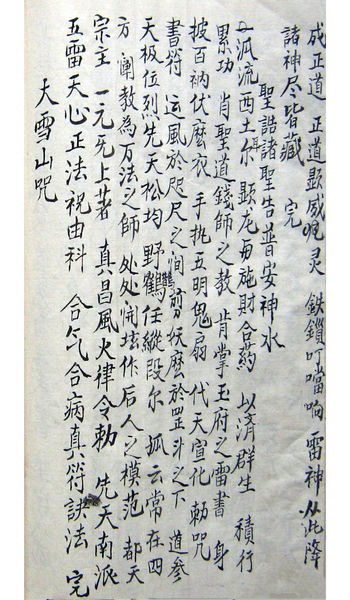 成正道 正道显威灵 鉄鎖叮噹响 雷神从此降
諸神尽皆藏 完
聖誥諸聖告普安神水
一派流西土尔 显龙毋施財合药 以済群生 積行
累功 肖聖道錢師之教 肯掌玉府之雷書 身
披百衲伏麽衣 手执五明鬼扇 代天宣化 勅咒
書符 运風於咫尺之间 剪妖麽於罡斗之下 道参
天极位烈先天松均 野鶴任縱段尔 孤云常在四
方 阐教為万法之师 处处闶坛作后人之模范 都天
宗主 一元先上著 真昌風火律令勅 先天南派
五雷天心正法祝由科 合气合病真符訣法 完
大雪山咒